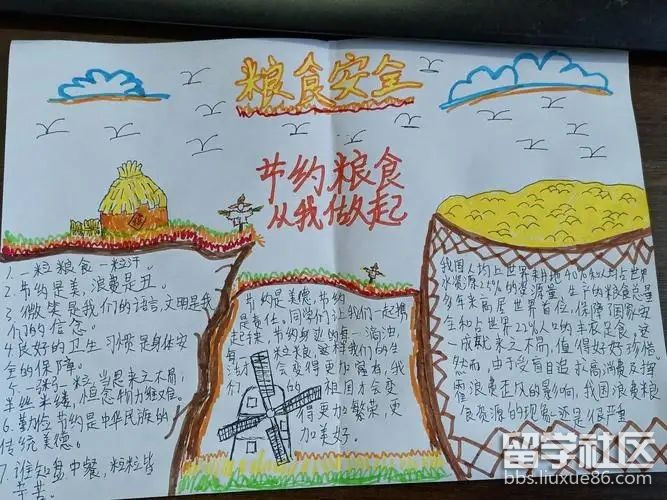 粮食安全
节约粮食
从我做起
1.一粒粮食一粒汗。
2.节约是美,浪费是丑。
3.微笑是我们的语言,文明是我
们的信念。
4.良好的卫生习惯是身体安
全的保障。
5.一粥一粒,当思来之不易,
半丝半缕,恒念物力维艰。
6.勤俭节约是中华民族的
传统美德。
7.谁知盘中餐,粒粒皆
辛苦。
节约是美德,节约
是责任,同学们让我们一起携
起手来,节约身边的每一滴油
每一粒粮,这样我们的生
活才会变得更加富有,我
们的祖国才会变
得更加繁荣,更
加美好。
我国人均占世界耕地40%
水资源25%的资源量,生产的粮食总量
多年来高居世界首位,保障了国家安
全和占世界22%人口的丰衣足食,这一
成就来之不易,值得好好珍惜。
然而,由于受盲目追求高消费及挥
霍浪费歪风的影响,我国浪费粮
食资源的现象还是很严重
留学社区
bbs.liuxue86.com